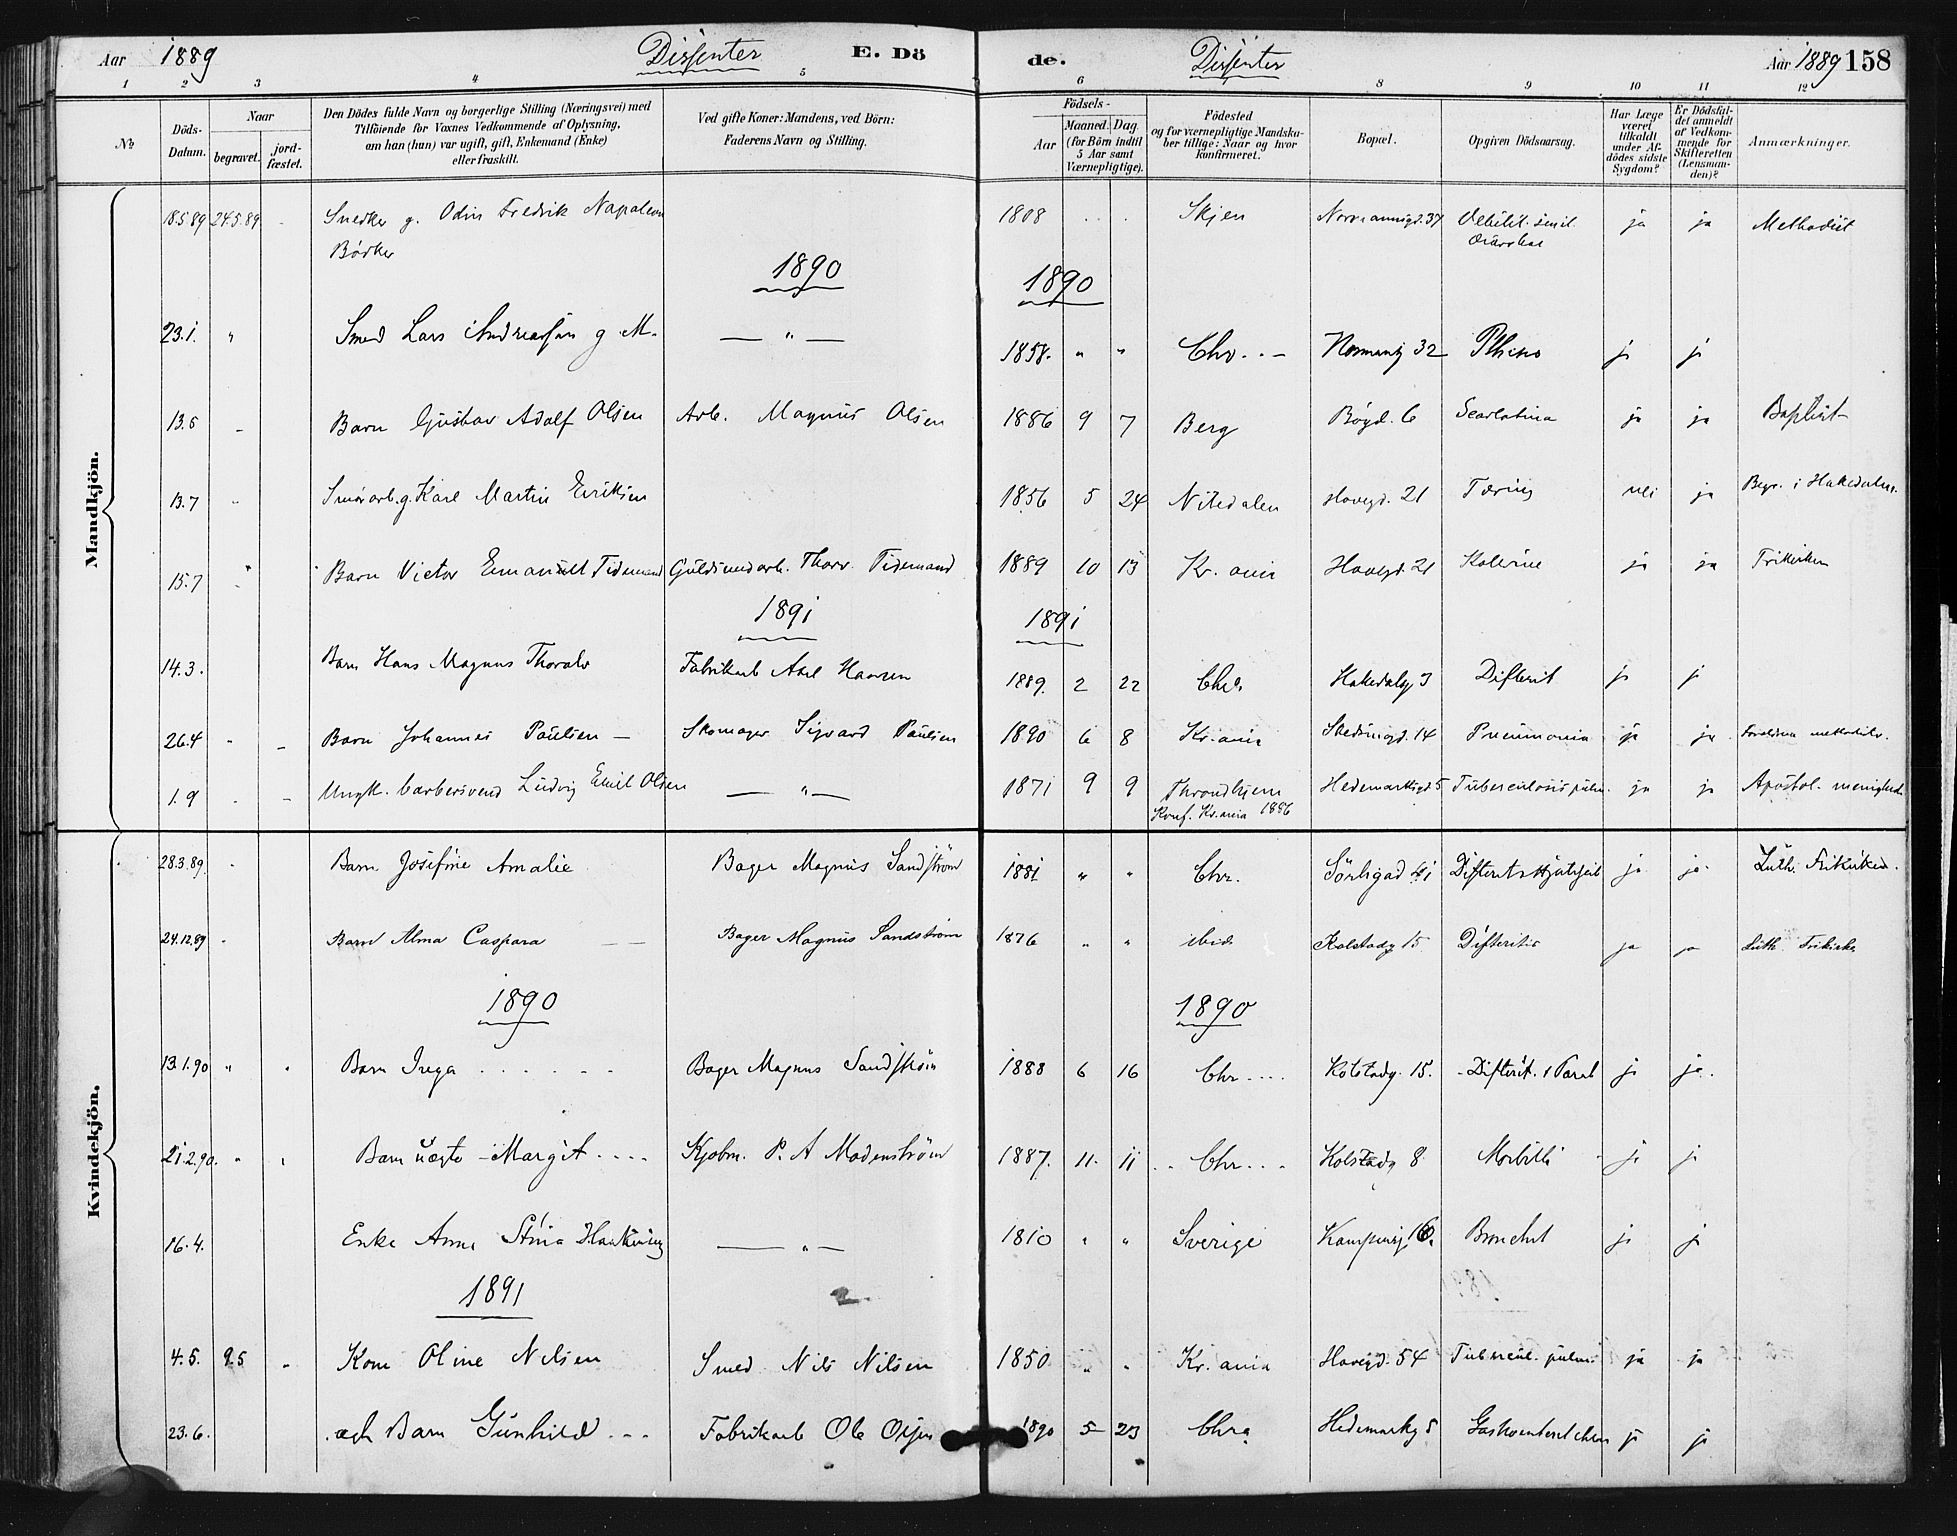 Aar 1889 Dissenter E. Döde. Dissenter Aar 1889 158
1 2 3 4 5 6 8 9 10 11 12
No
Döds-Datum.
Naar
begravet. jordfæstet.
Den Dödes fulde Navn og borgerlige Stilling (Næringsvei) med
Tilföiende for Voxnes Vedkommende af Oplysning,
om han (hun) var ugift, gift, Enkemand (Enke)
eller fraskilt.
Ved gifte Koner: Mandens, ved Börn:
Faderens Navn og Stilling.
Födsels-
Aar Maaned. Dag.
(for Börn indtil
5 Aar samt
Værnepligtige).
Födested
og for værnepligtige Mandskaber tillige: Naar og hvor
konfirmeret.
Bopæl.
Opgiven Dödsaarsag.
Har Læge
været
tilkaldt
under Afdödes sidste
Sygdom?
Er Dödsfaldet anmeldt
af Vedkommende for
Skifteretten
(Lensmanden)?
Anmærkninger.
Mandkjön.
18.5 89 24.5.89 Snedker g. Odin Fredrik Napoleon 1808 Skjen 37 ja ja Methodist
Bödker
1890 1890
23.1. " Smed Lars Andreassen g M. — " — 1858. " " Chr. 32 Pthisis ja ja
13.5 Barn Gustav Adolf Olsen Arb. Magnus Olsen 1886 9 7 Berg Bögd. 6 Scarlatina ja ja Baptist
13.7 g. Karl Martin Eriksen 1856 5 24 Nitedalen Havegd. 21 Tæring nei ja Begr. i Hakedalen.
15.7 Barn Victor Emanuel Tidemand Guldsmedarb. Thorv. Tidemand 1889 10 13 Kr.ania Havegd. 21 Kolerine ja ja Frikirken
1891 1891
14.3. Barn Hans Magnus Thoralv Fabrikarb Axel Hansen 1889. 2 22 Chra Hakedalsg 3 Difterit ja ja
26.4 Barn Johannes Paulsen — Skomager Sigvard Paulsen 1890 6 8 Kr.ania 14 Pneumonia ja ja
1.9 Ungk. barbersvend Ludvig Emil Olsen — " — 1871 9 9 Throndhjem Hedemarksgd 5 Tuberculosis pulm. ja ja Apostol. menighed
Konf. Kr.ania 1886
Kvindekjön.
28.3.89. Barn Josefine Amalie Bager Magnus Sandström 1881 " " Chr. Sörligad 41 ja ja Luth. Frikirken.
24.12.89 Barn Alma Caspara Bager Magnus Sandström 1876 " " ibid. Kolstadg 15 Difteritis ja ja Luth. Frikirke
1890 1890
13.1.90 " Barn Inga Bager Magnus Sandström 1888 6 16 Chr. Kolstadg. 15. Difterit. ja ja.
21.2.90. " Barn uægte Margit P. A Modenström 1887. 11. 11 Chr. Kolstadg 8 Morbilli ja ja
16.4. Enke Anne Stina — " — 1810 " " Sverige 16. Bronchit ja ja
1891
4.5. 9.5 Kone Oline Nilsen Smed Nils Nilsen 1850 " " Kr.ania Havegd. 54 Tubercul. pulm. ja ja
23.6. Barn Gunhild Fabrikarb Ole Olsen 1890 5 23 Chra Hedemarkg 5 ja ja